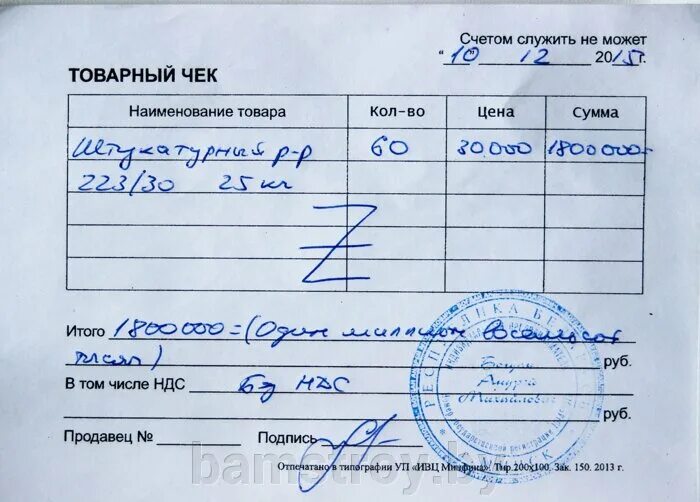 Счетом служить не может
"10" 12 2015г.
ТОВАРНЫЙ ЧЕК
Наименование товара Кол-во Цена Сумма
Штукатурный р-р 60 30000 1800000=
223/30 25 кг
Итого 1800000=(Один миллион восемьсот
тысяч) руб.
В том числе НДС Без НДС
руб.
Продавец № Подпись
Отпечатано в типографии УП «ИВЦ Минфина». Тир.200х100. Зак. 150. 2013 г.
РЕСПУБЛИКА БЕ
Андрей
Михайлович
bamstroy.by